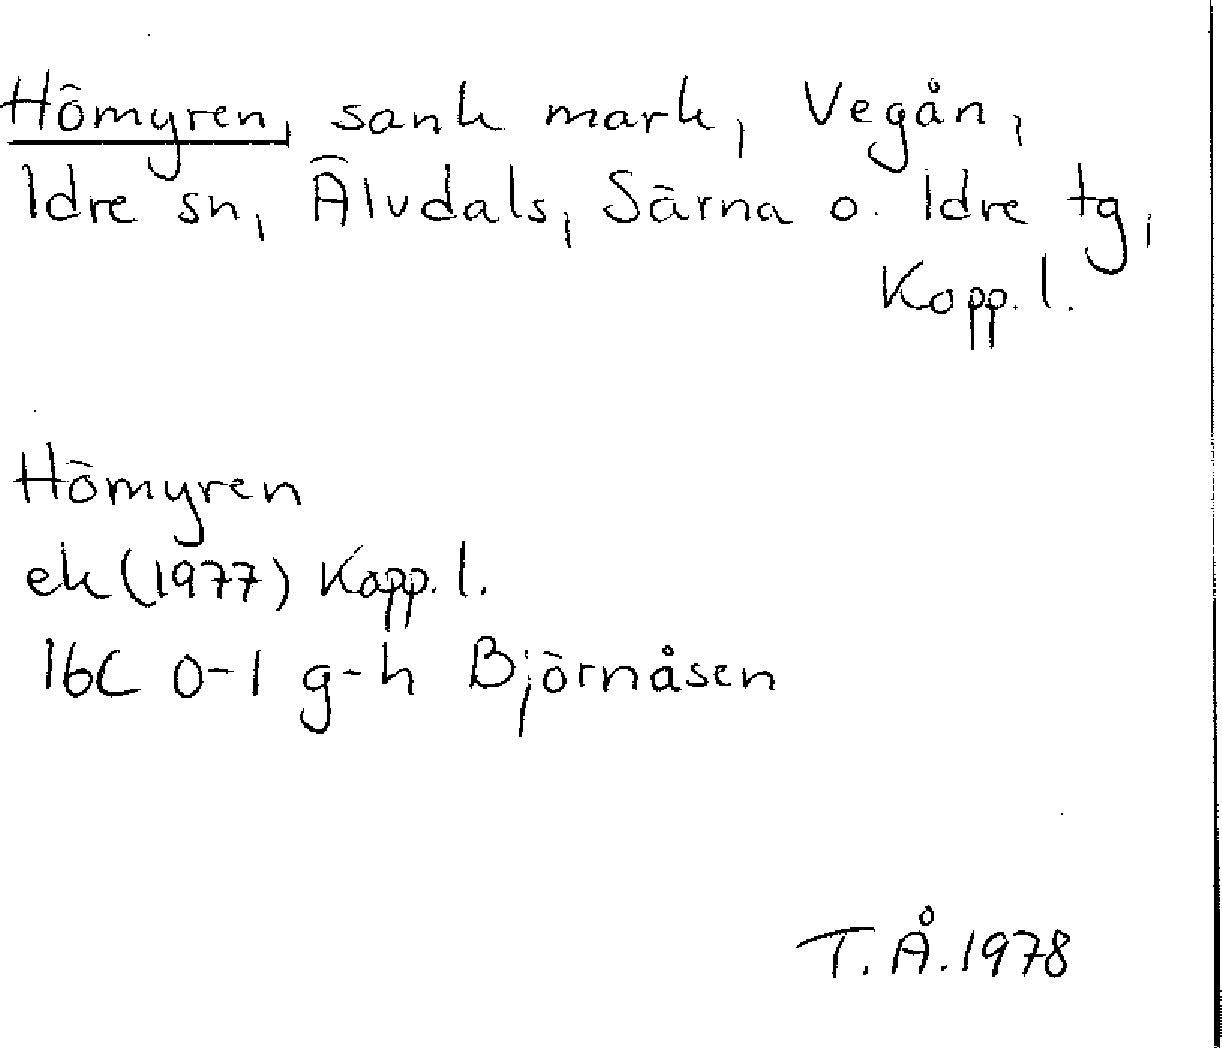 Hömyren, sank mark, Vegån,
Idre sn, Älvdals, Särna o. Idre tg,
Kopp. l.
Hömyren
ek (1977) Kopp. l.
16C 0-1 g-h Björnåsen
T. Å. 1978